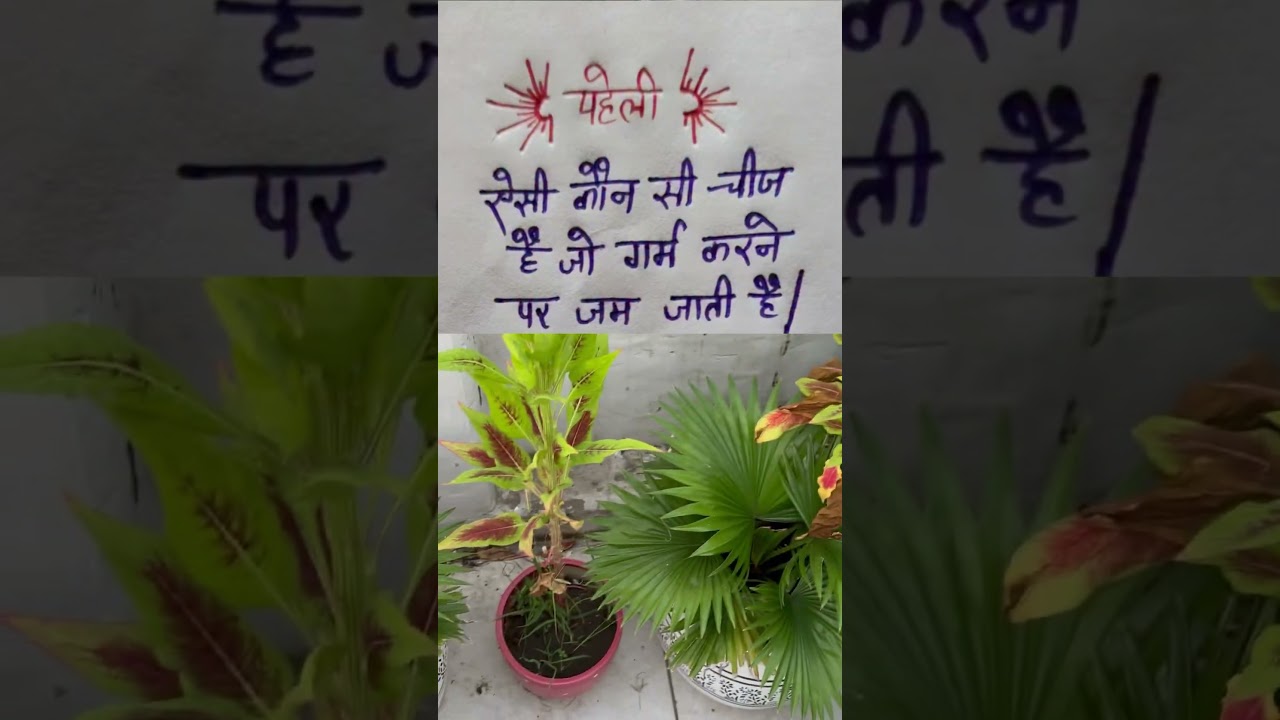 पहेली
ऐसी कौन सी चीज
है जो गर्म करने
पर जम जाती है।